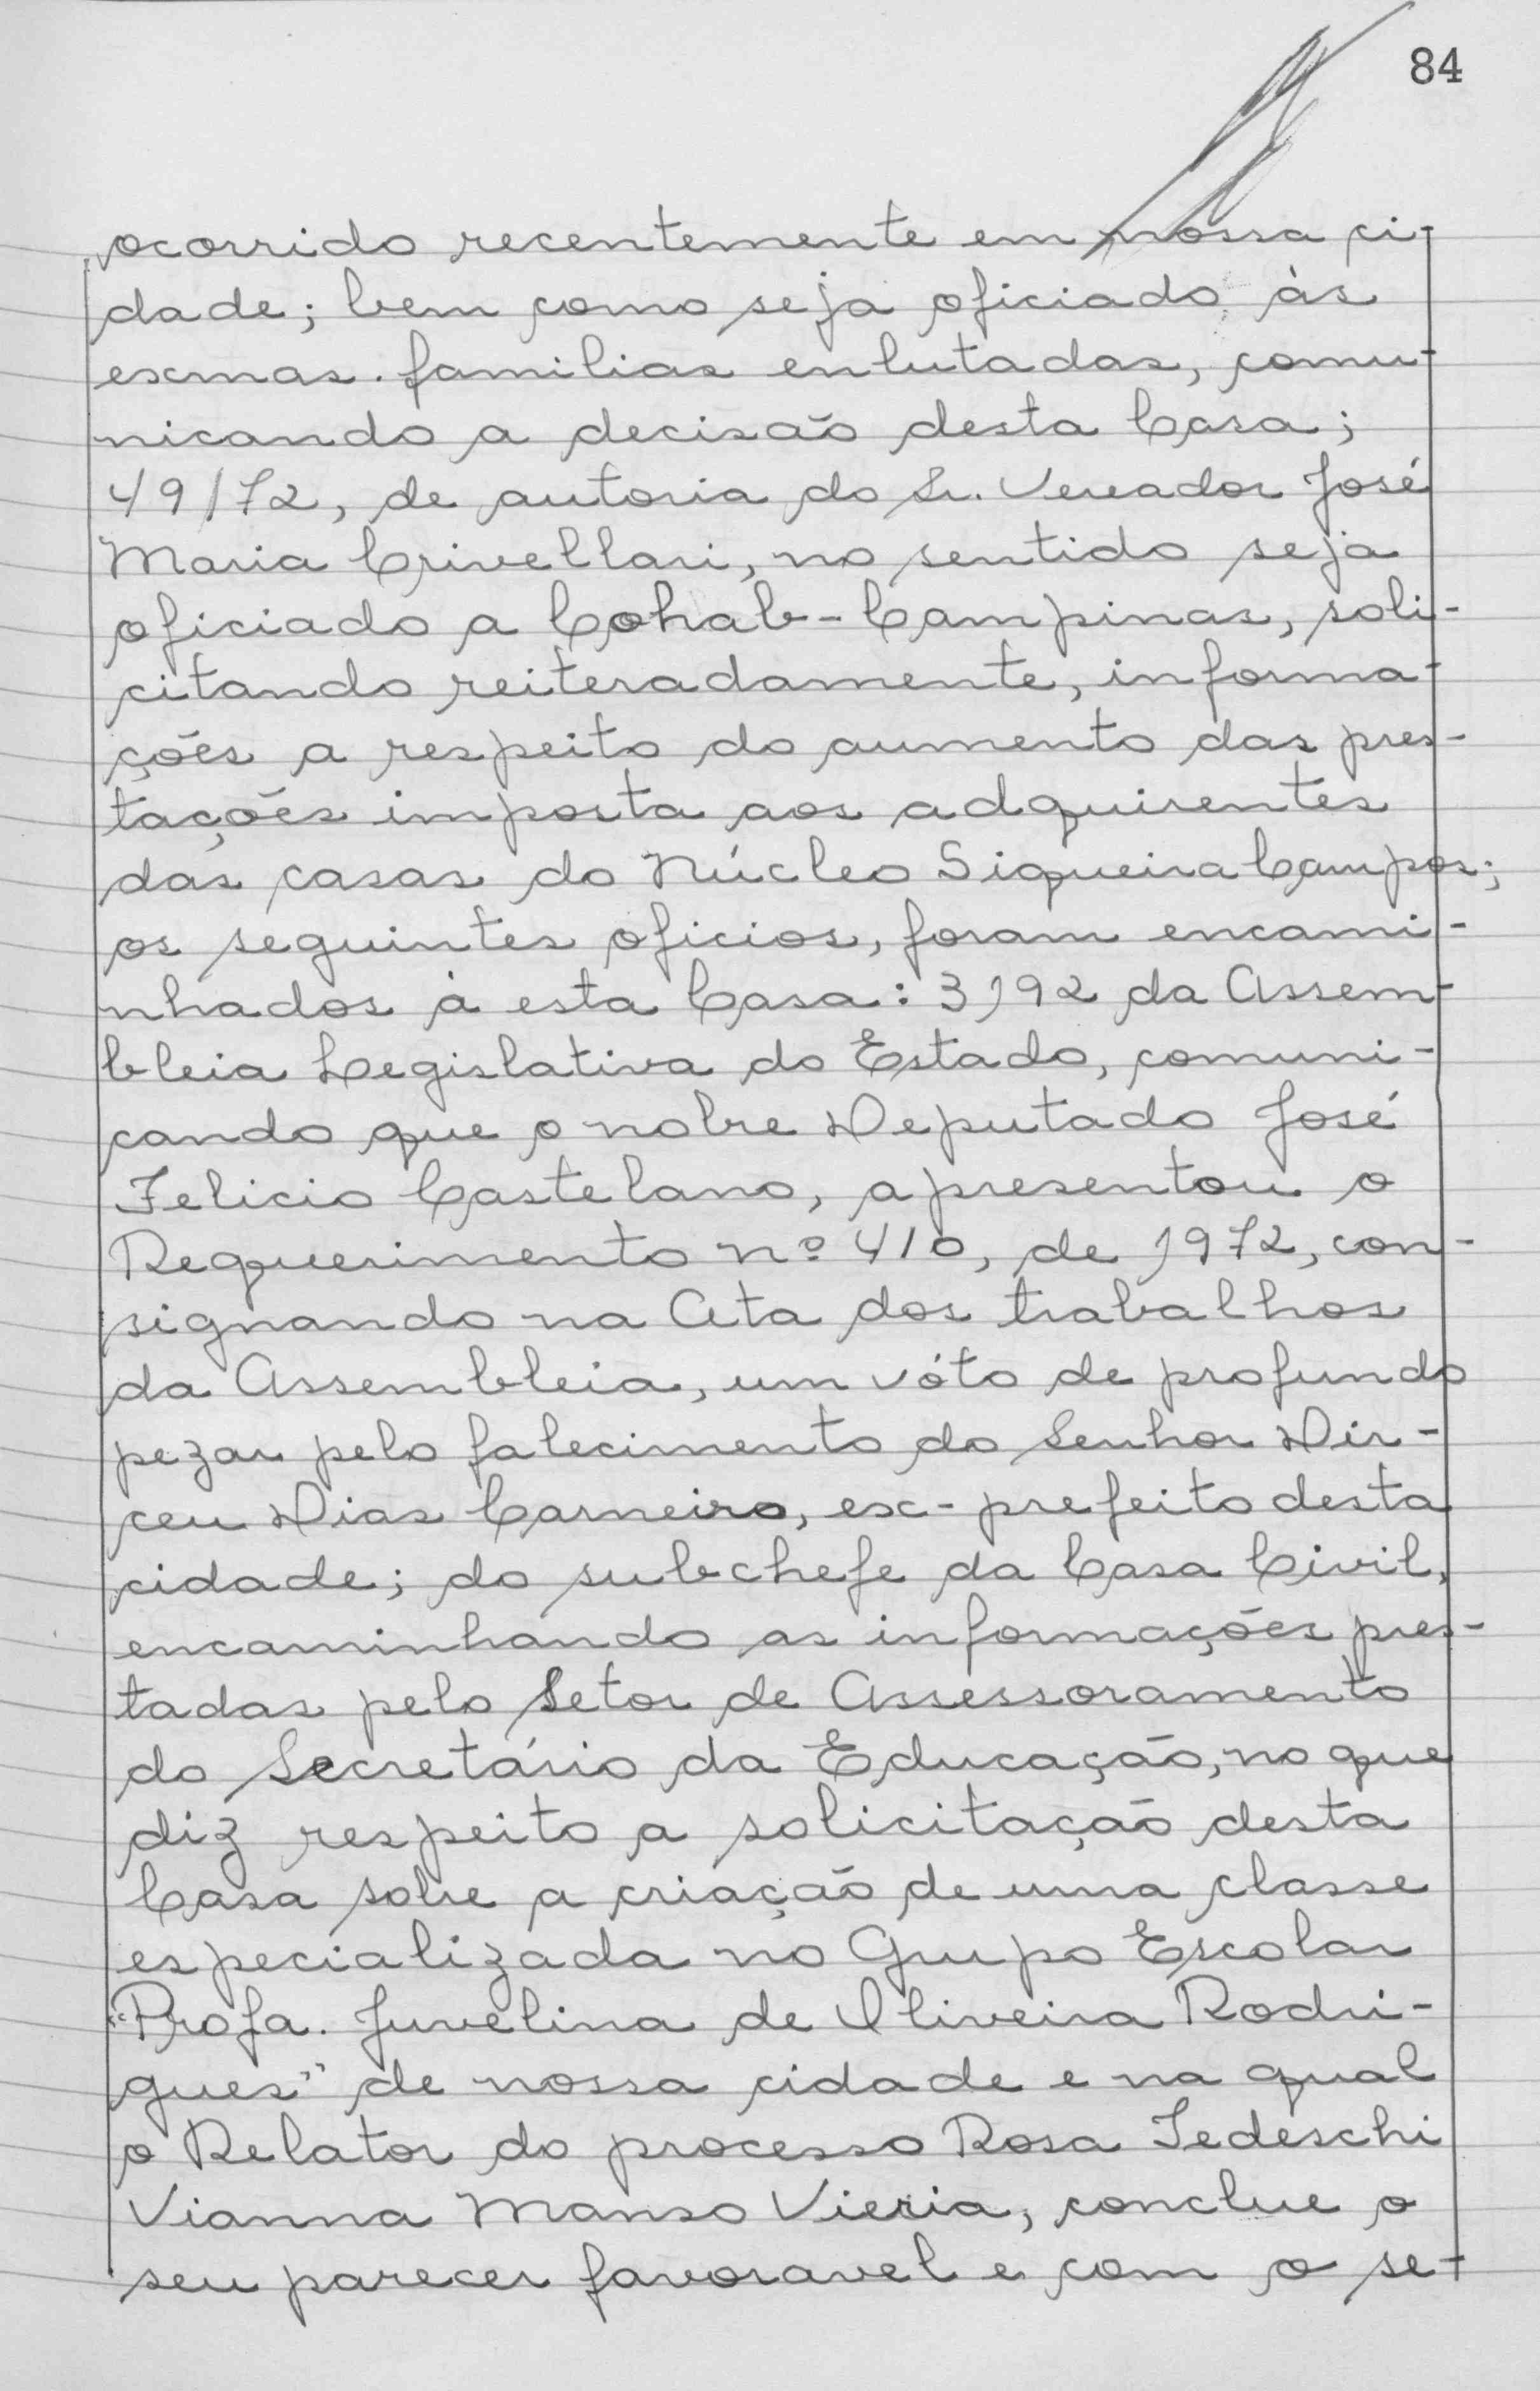 84
ocorrido recentemente em nossa ci-
dade; bem como seja oficiado às
exmas. familias enlutadas, comu-
nicando a decisão desta Casa;
49/72, de autoria do Sr. Vereador José
Maria Crivellari, no sentido seja
oficiado a Cohab-Campinas, soli-
citando reiteradamente, informa-
ções a respeito do aumento das pres-
tações imposta aos adquirentes
das casas do Núcleo Siqueira Campos;
os seguintes oficios, foram encami-
nhados à esta Casa: 3192 da Assem-
bleia Legislativa do Estado, comuni-
cando que o nobre Deputado José
Felicio Castelano, apresentou o
Requerimento nº 410, de 1972, con-
signando na Ata dos trabalhos
da Assembleia, um vóto de profundo
pezar pelo falecimento do Senhor Dir-
ceu Dias Carneiro, ex-prefeito desta
cidade; do subchefe da Casa Civil,
encaminhando as informações pres-
tadas pelo Setor de Assessoramento
do Secretário da Educação, no que
diz respeito a solicitação desta
Casa sobre a criação de uma classe
especializada no Grupo Escolar
"Profa. Juvelina de Oliveira Rodri-
gues" de nossa cidade e na qual
o Relator do processo Rosa Tedeschi
Vianna Manso Vieria, conclue o
seu parecer favoravel e com o se-